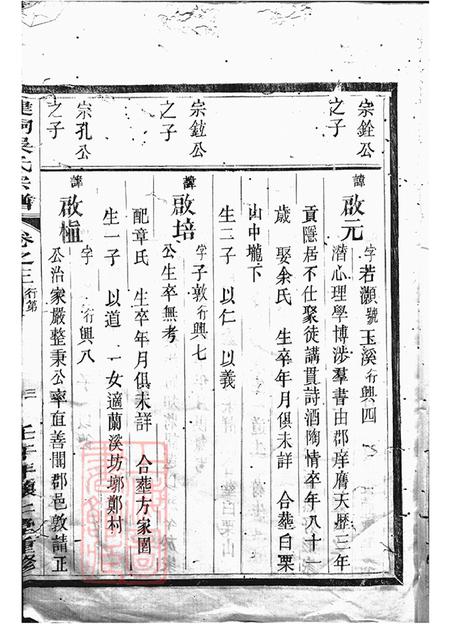 宗銓公
之子
諱啟元
字若灝號玉溪行興四
潛心理學博涉羣書由郡庠膺天歷三年
貢隱居不仕聚徒講貫詩酒陶情卒年八十一
歲 娶余氏 生卒年月俱未詳 合塟白栗
山中壠下
生二子 以仁 以義
宗鉝公
之子
諱啟培
字子敦行興七
公生卒無考
配章氏 生卒年月俱未詳 合塟方家園
生一子 以道 一女適蘭溪坊墎鄭村
宗孔公
之子
諱啟楦
字 行興八
公治家嚴整秉公率直善聞郡邑敦請正
吳氏宗譜 卷之三 行第 三